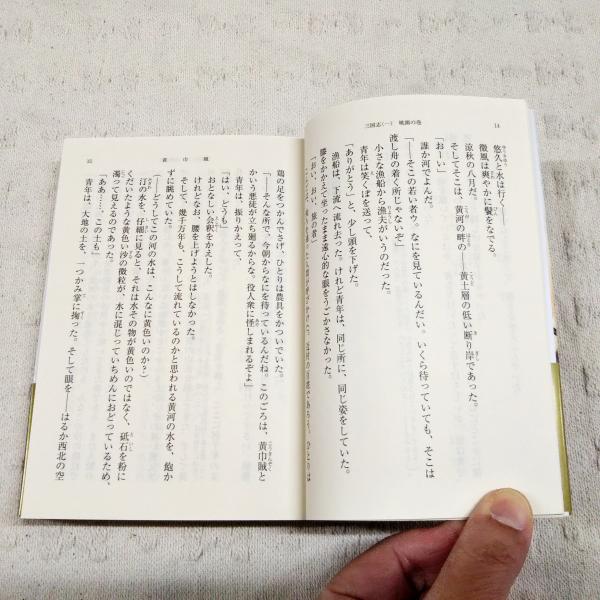 三国志(一) 桃園の巻
14
悠久と水は行く――
微風は爽やかに鬢をなでる。
涼秋の八月だ。
そしてそこは、黄河の畔の――黄土層の低い断り岸であった。
「おーい」
誰か河でよんだ。
「――そこの若い者ウ。なにを見ているんだい。いくら待っていても、そこは
渡し舟の着く所じゃないぞ」
小さな漁船から漁夫がいうのだった。
青年は笑くぼを送って、
「ありがとう」と、少し頭を下げた。
漁船は、下流へ流れ去った。けれど青年は、同じ所に、同じ姿をしていた。
膝をかかえて坐ったまま遠心的な眼をうごかさなかった。
「おい、おい、旅の者」
黄巾賊
15
鶏の足をつかんでさげ、ひとりは農具をかついでいた。
「――そんな所で、今朝からなにを待っているんだね。このごろは、黄巾賊と
かいう悪徒が立ち廻るからな。役人衆に怪しまれるぞよ」
青年は、振りかえって、
「はい、どうも」
おとなしい会釈をかえした。
けれどなお、腰を上げようとはしなかった。
そして、幾千万年も、こうして流れているのかと思われる黄河の水を、飽か
ずに眺めていた。
(――どうしてこの河の水は、こんなに黄色いのか?)
汀の水を、仔細に見ると、それは水その物が黄色いのではなく、砥石を粉に
くだいたような黄色い沙の微粒が、水に混じっていちめんにおどっているため、
濁って見えるのであった。
「ああ……、この土も」
青年は、大地の土を、一つかみ掌に掬った。そして眼を――はるか西北の空